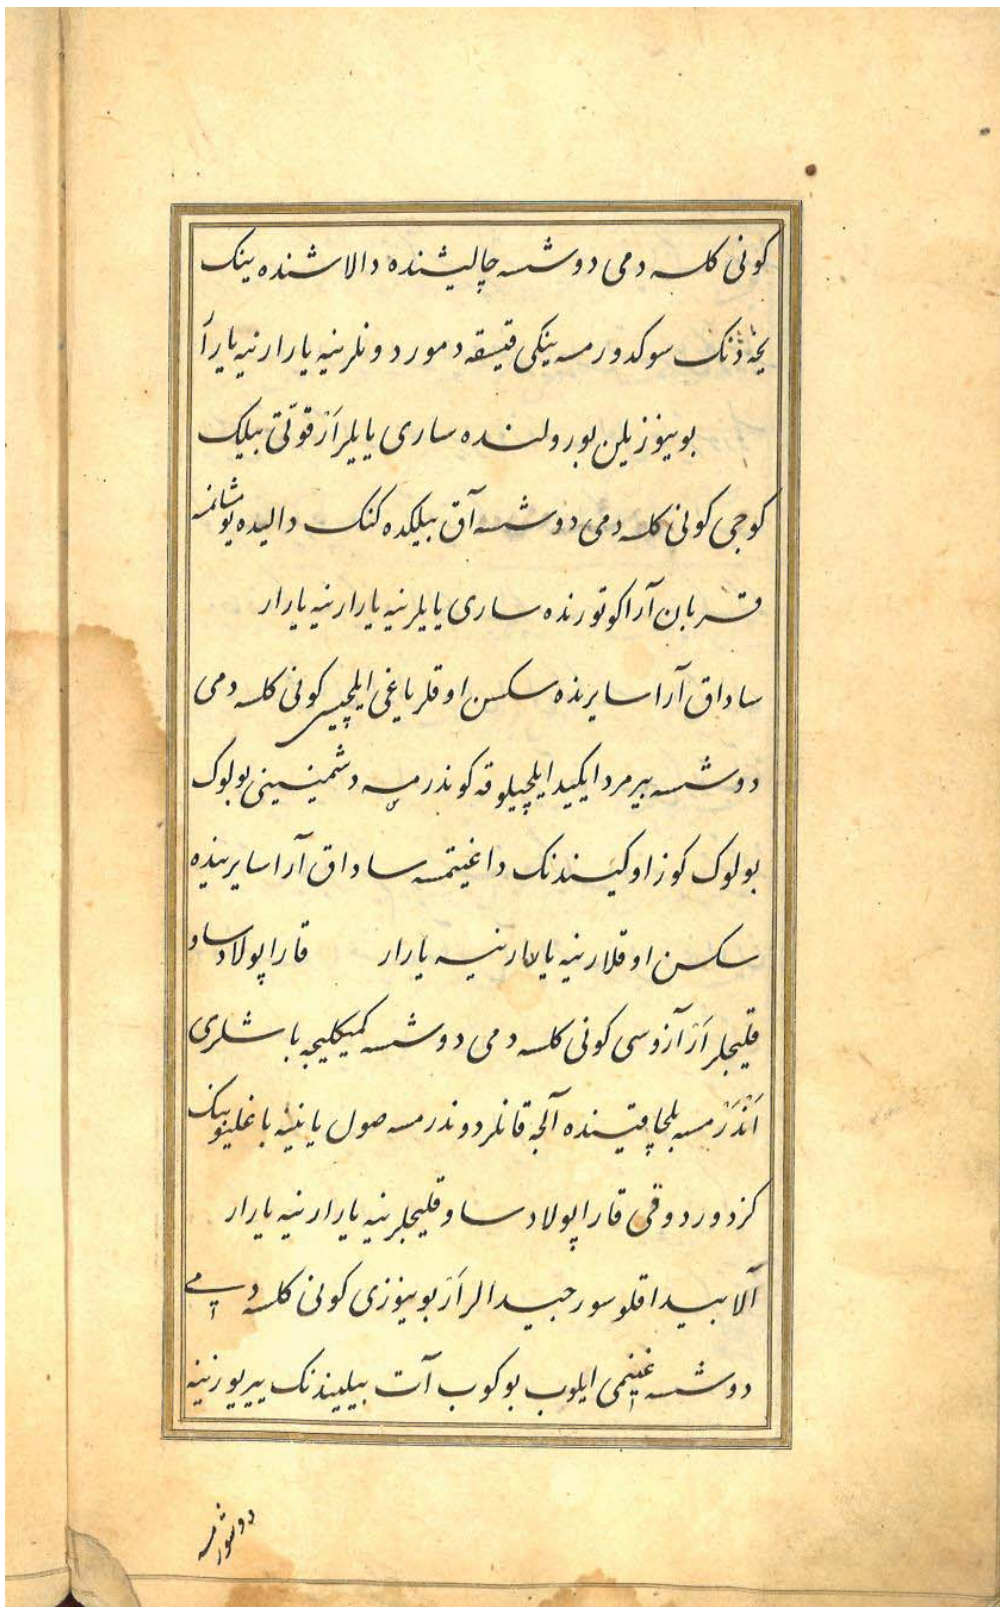 کونی کلسه دمی دوشسه چالیشنده دالاشنده ینک
یخه ڎنک سوکدورمسه ینکی قیسقه دموردونلرینه یارار نیه یارار
بوینوزیلن بورولنده ساری یایلر اَر قوتی بیلک
کوجی کونی کلسه دمی دوشسه آق بیلکده کنک دالیده یوشانمسه
قربان آرا کوتورنده ساری یایلر نیه یارار نیه یارار
ساداق آرا سایرنده سکسن اوقلر یاغی ایلچیسی کونی کلسه دمی
دوشسه بیر مرد ایکید ایلچیلوقه کوندرمسه دشمنینی بولوک
بولوک کوز اوکیندنک داغیتمسه ساداق آرا سایرینده
سکسن اوقلار نیه یارار نیه یارار قارا پولاد ساو
قلیجلر اَر آرزوسی کونی کلسه دمی دوشسه کمیکلیجه باشلری
اَندَرمسه بلچاقینده آلجه قانلر دوندرمسه صول یانینه باغلینوبنک
کزدوردوقی قارا پولاد ساو قلیجلر نیه یارار نیه یارار
آلا بیداقلو سور جیدالر اَر بوینوزی کونی کلسه دمی
دوشسه غنیمی ایلوب بوکوب آت بیلیندنک ییر یوزینه
دوشورمسه